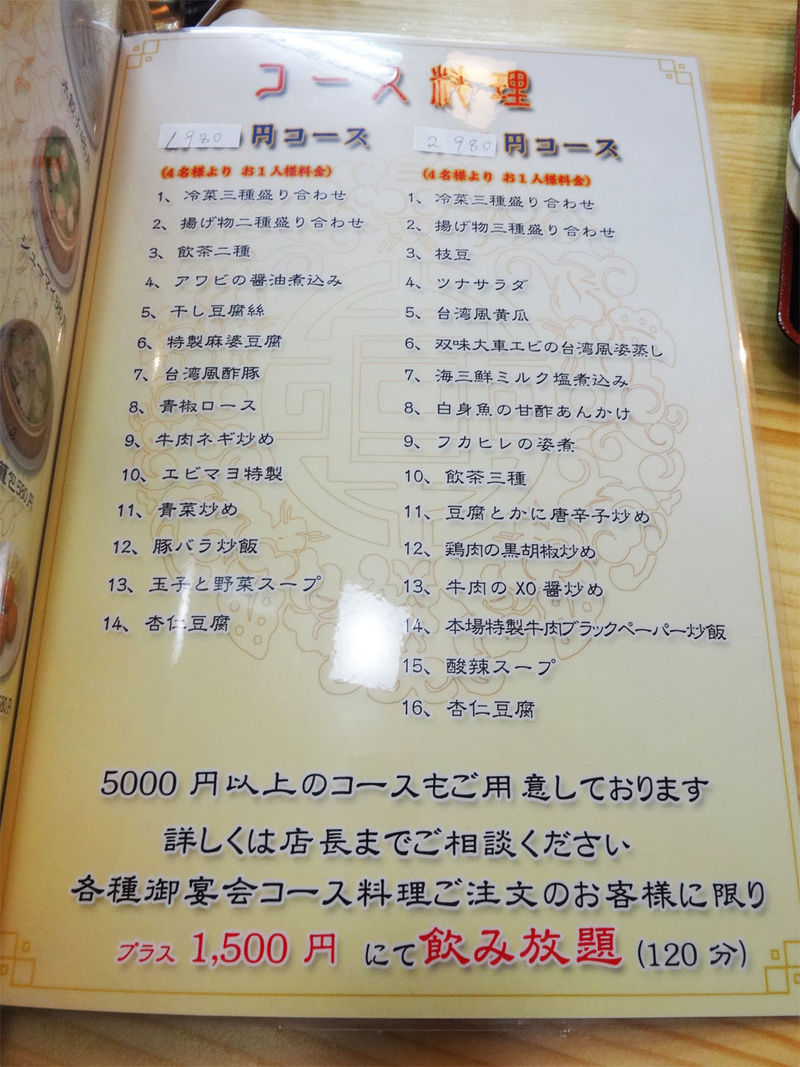 コース料理
1980円コース
(4名様より お1人様料金)
1、冷菜三種盛り合わせ
2、揚げ物二種盛り合わせ
3、飲茶二種
4、アワビの醤油煮込み
5、干し豆腐絲
6、特製麻婆豆腐
7、台湾風酢豚
8、青椒ロース
9、牛肉ネギ炒め
10、エビマヨ特製
11、青菜炒め
12、豚バラ炒飯
13、玉子と野菜スープ
14、杏仁豆腐
2980円コース
(4名様より お1人様料金)
1、冷菜三種盛り合わせ
2、揚げ物三種盛り合わせ
3、枝豆
4、ツナサラダ
5、台湾風黄瓜
6、双味大車エビの台湾風姿蒸し
7、海三鮮ミルク塩煮込み
8、白身魚の甘酢あんかけ
9、フカヒレの姿煮
10、飲茶三種
11、豆腐とかに唐辛子炒め
12、鶏肉の黒胡椒炒め
13、牛肉のXO醤炒め
14、本場特製牛肉ブラックペーパー炒飯
15、酸辣スープ
16、杏仁豆腐
5000 円以上のコースもご用意しております
詳しくは店長までご相談ください
各種御宴会コース料理ご注文のお客様に限り
プラス 1,500 円 にて飲み放題 (120 分)